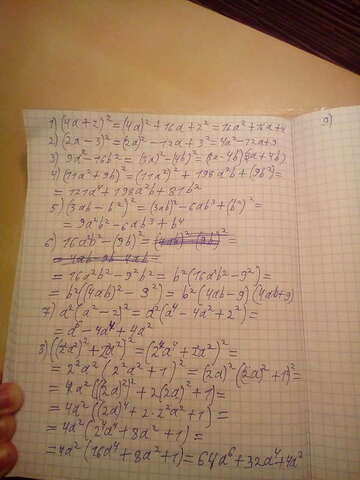 1) (4a+2)² = (4a)² + 16a + 2² = 16a² + 16a + 4
9)
2) (2a-3)² = (2a)² - 12a + 3² = 4a² - 12a + 9
3) 9a² - 16b² = (3a)² - (4b)² = (3a-4b)(3a+4b)
4) (11a² + 9b)² = (11a²)² + 198a²b + (9b)² =
= 121a⁴ + 198a²b + 81b²
5) (3ab - b²)² = (3ab)² - 6ab³ + (b²)² =
= 9a²b² - 6ab³ + b⁴
6) 16a²b² - (9b)² =
= 16a²b² - 9²b² = b²(16a²b² - 9²) =
= b²((4ab)² - 9²) = b²(4ab-9)(4ab+9)
7) a²(a²-2)² = a²(a⁴ - 4a² + 2²) =
= a⁶ - 4a⁴ + 4a²
= 4a²((2a)²)² + 2(2a)² + 1) =
= 4a²((2a)⁴ + 2·2²a² + 1) =
= 4a²(2⁴a⁴ + 8a² + 1) =
= 4a²(16a⁴ + 8a² + 1) = 64a⁶ + 32a⁴ + 4a²